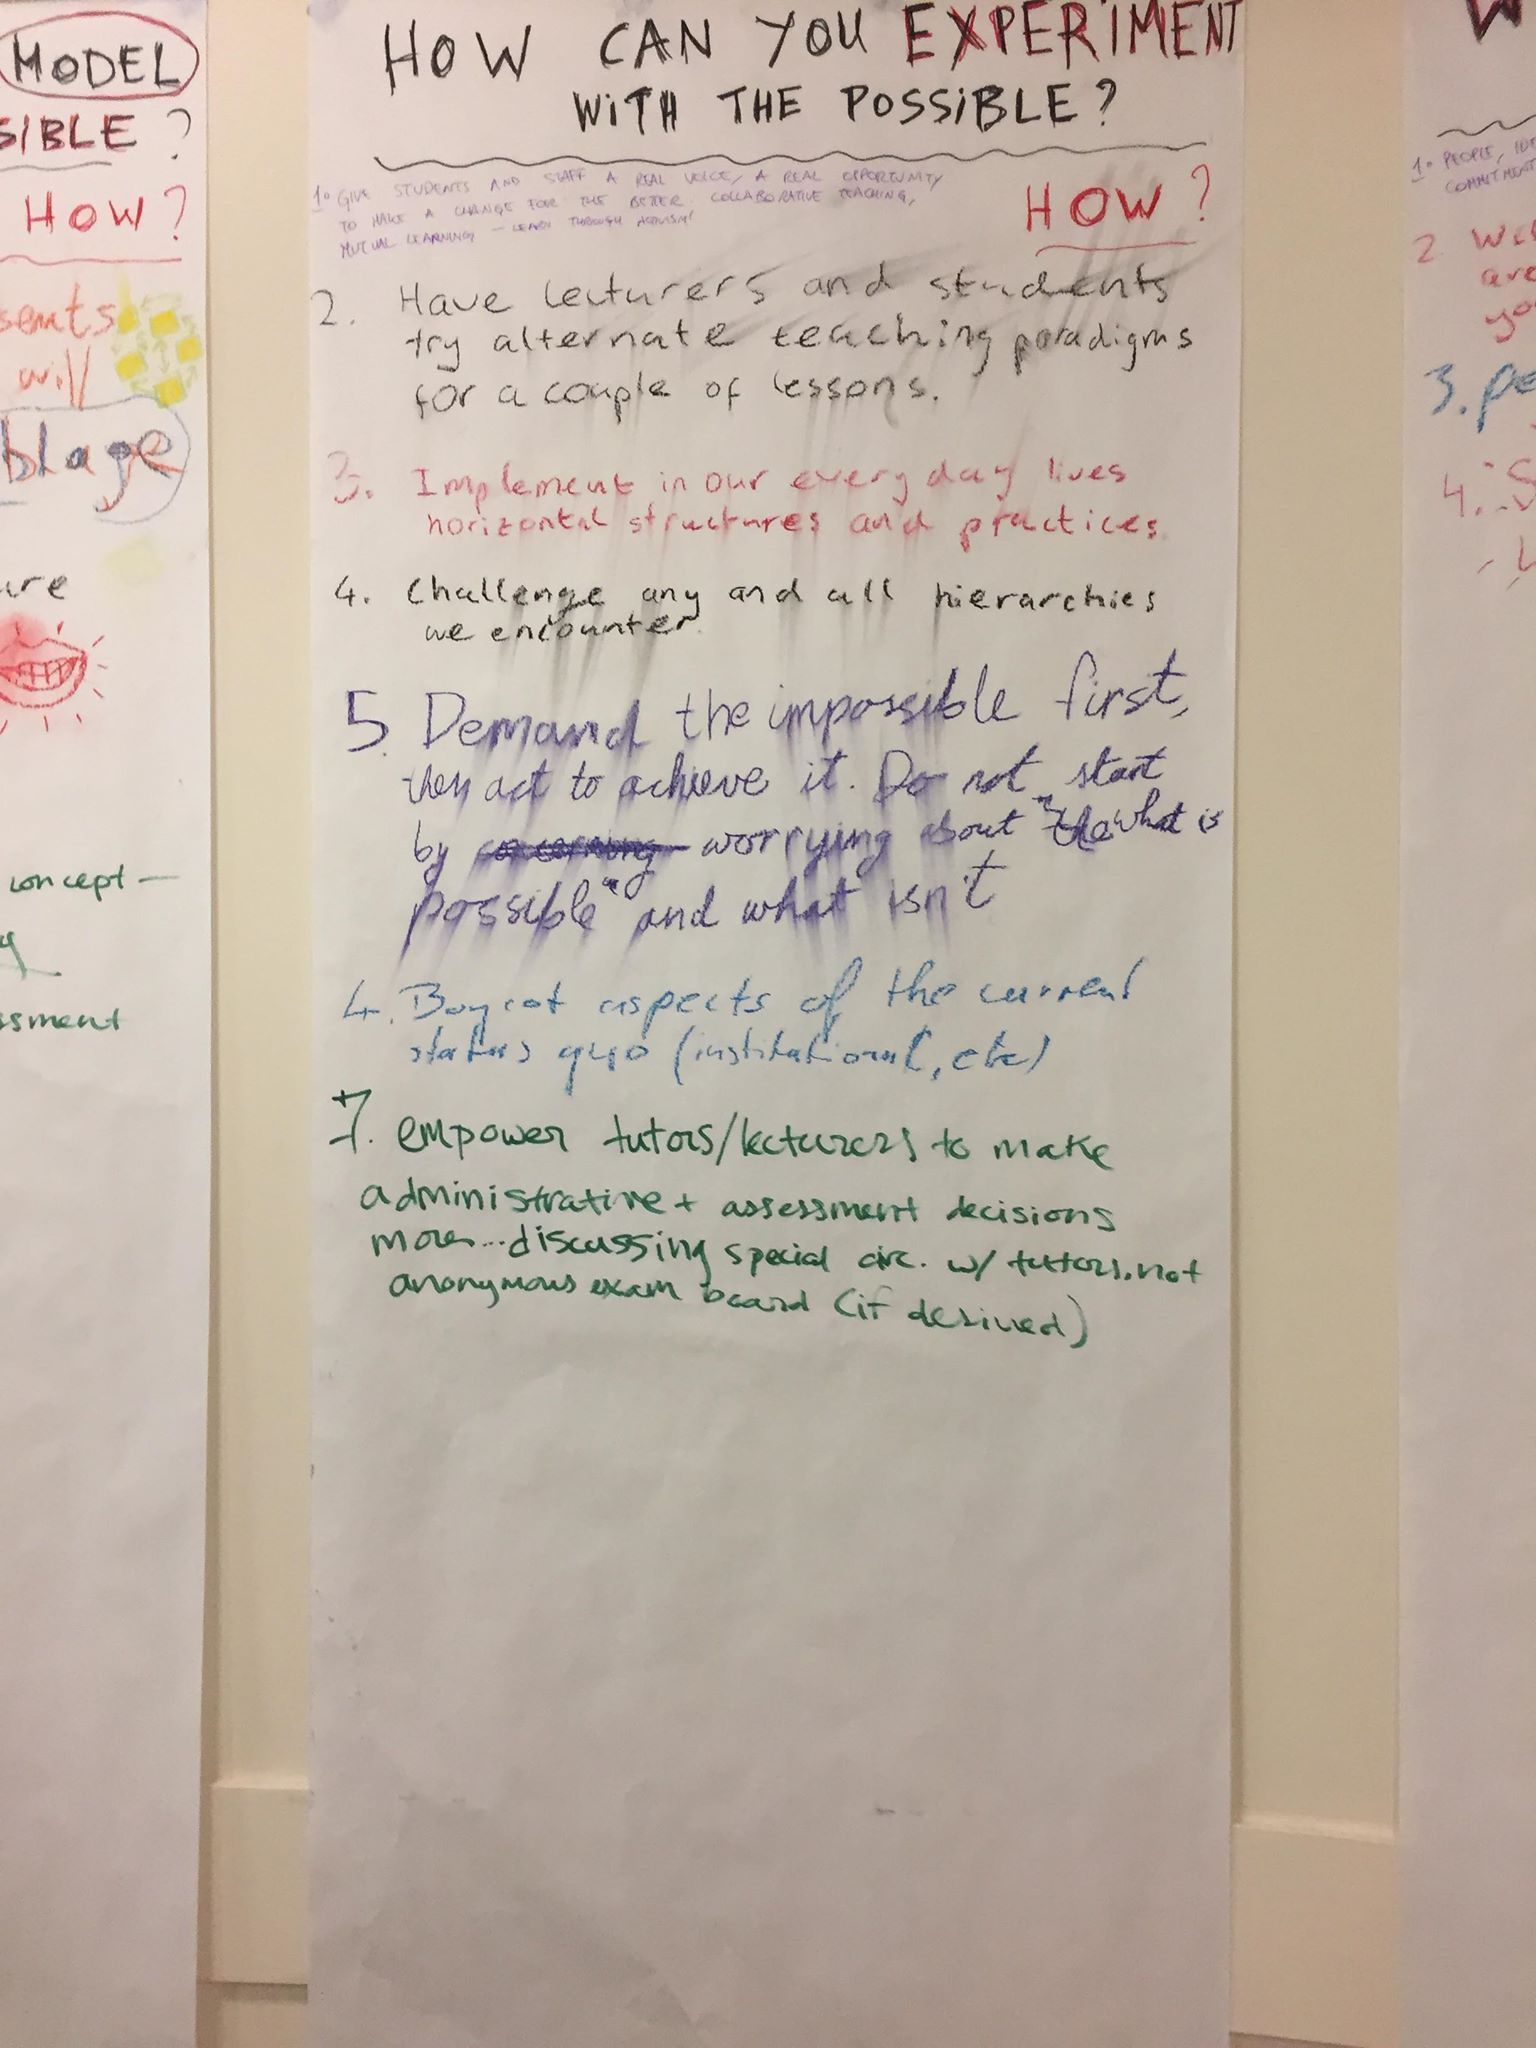 MODEL
SIBLE ?
HOW ?
sents
will
blage
ure
concept —
y
ssment
HOW CAN YOU EXPERIMENT
WITH THE POSSIBLE ?
HOW ?
1. GIVE STUDENTS AND STAFF A REAL VOICE, A REAL OPPORTUNITY
TO MAKE A CHANGE FOR THE BETTER. COLLABORATIVE TEACHING,
MUTUAL LEARNING – LEARN THROUGH ACTIVISM!
2. Have lecturers and students
try alternate teaching paradigms
for a couple of lessons.
3. Implement in our every day lives
horizontal structures and practices.
4. Challenge any and all hierarchies
we encounter.
5. Demand the impossible first,
then act to achieve it. Do not start
by concerning worrying about "the what is
possible" and what isn't
4. Boycot aspects of the current
status quo (institutional, etc)
7. empower tutors/lecturers to make
administrative + assessment decisions
more... discussing special circ. w/ tutors, not
anonymous exam board (if desired)
W
1. PEOPLE, IDE
COMMITMENT
2 Wi
are
yo
3. pe
4.